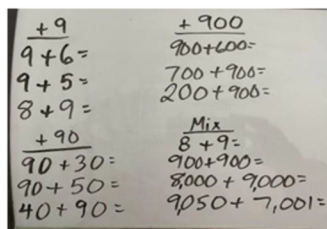 + 9
9 + 6 =
9 + 5 =
8 + 9 =
+ 90
90 + 30 =
90 + 50 =
40 + 90 =
+ 900
900 + 600 =
700 + 900 =
200 + 900 =
Mix
8 + 9 =
900 + 900 =
8,000 + 9,000 =
9,050 + 7,001 =